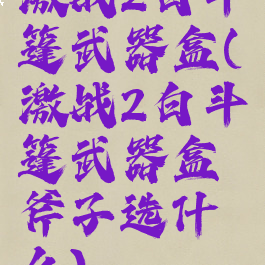 激战2白斗
篷武器盒(
激战2白斗
篷武器盒
斧子选什
么)